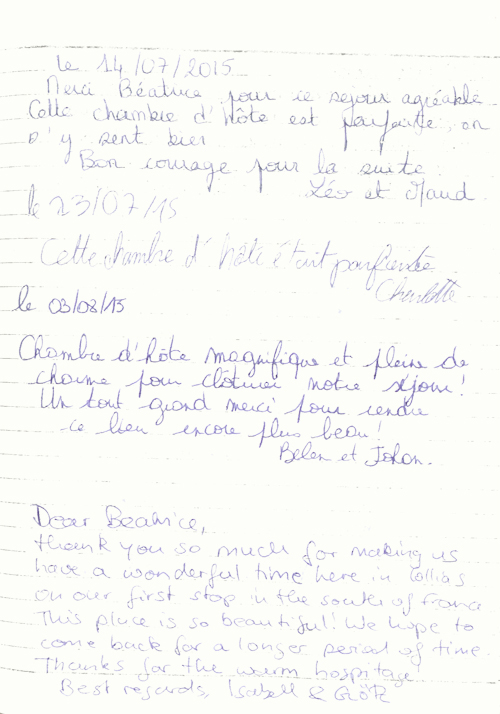 le 14/07/2015
Merci Béatrice pour ce séjour agréable
Cette chambre d'hôte est parfaite, on
s'y sent bien
Bon courage pour la suite
Léo et Maud
le 23/07/15
Cette chambre d'hôte était
Charlotte
le 03/08/15
Chambre d'hôte magnifique et pleine de
charme pour clôturer notre séjour!
Un tout grand merci pour rendre
ce lieu encore plus beau!
Belen et Johan.
Dear Beatrice,
thank you so much for making us
have a wonderful time here in Collias
on our first stop in the south of France
This place is so beautiful! We hope to
come back for a longer period of time.
Thanks for the warm hospitage
Best regards, Isabell & Götz